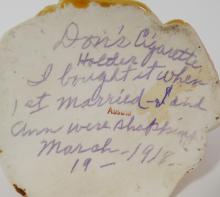 Don's Cigarette
Holder
I bought it when
1st married - I and
Ann were shopping
March - 1918 -
19 -